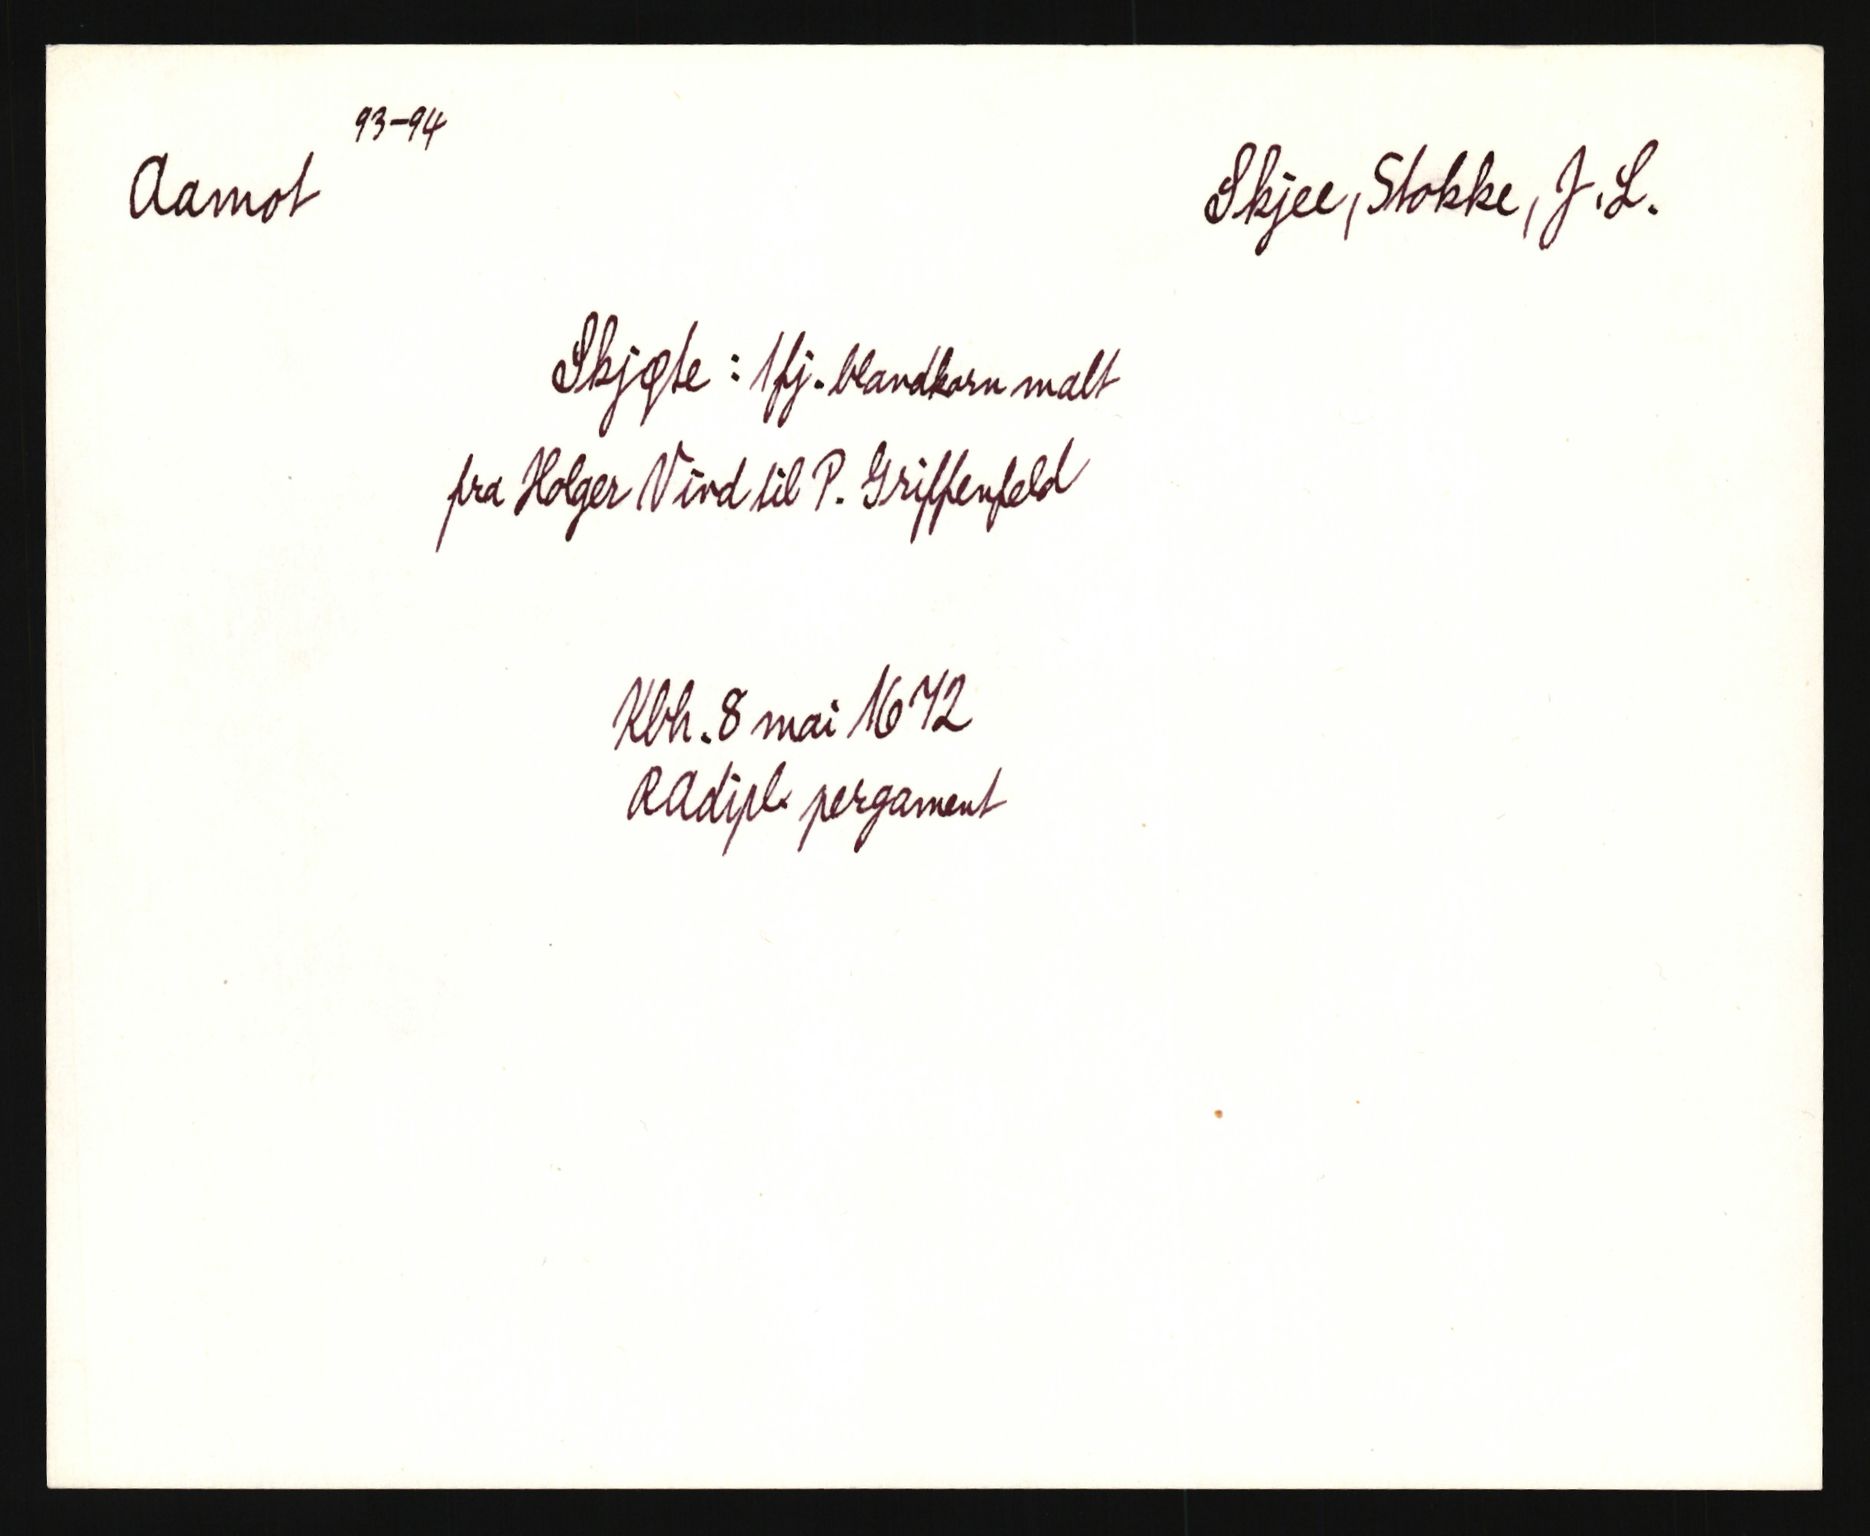 93-94
Aamot
Skjee, Stokke, J.L.
Skjøte : 1 fj. blandkorn malt
fra Holger Vind til P. Griffenfeld
Kbh. 8 mai 1672
RAdipl. pergament